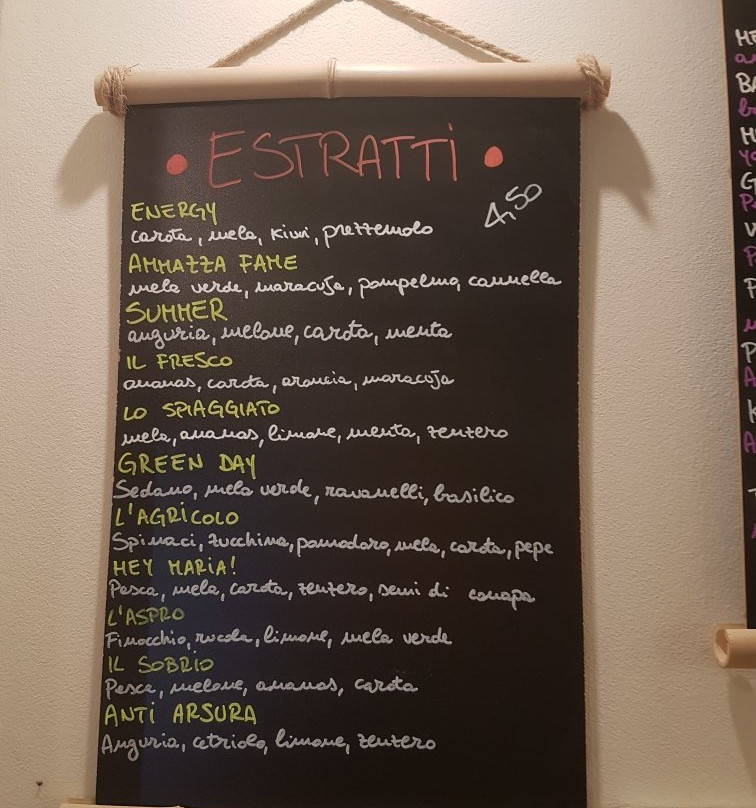 • ESTRATTI •
4,50
ENERGY
carota, mela, kiwi, prezzemolo
AMMAZZA FAME
mela verde, maracuja, pompelmo, cannella
SUMMER
anguria, melone, carota, menta
IL FRESCO
ananas, carota, arancia, maracoja
LO SPIAGGIATO
mela, ananas, limone, menta, zenzero
GREEN DAY
Sedano, mela verde, ravanelli, basilico
L'AGRICOLO
Spinaci, zucchina, pomodoro, mela, carota, pepe
HEY MARIA!
Pesca, mela, carota, zenzero, semi di canapa
L'ASPRO
Finocchio, rucola, limone, mela verde
IL SOBRIO
Pesca, melone, ananas, carota
ANTI ARSURA
Anguria, cetriolo, limone, zenzero